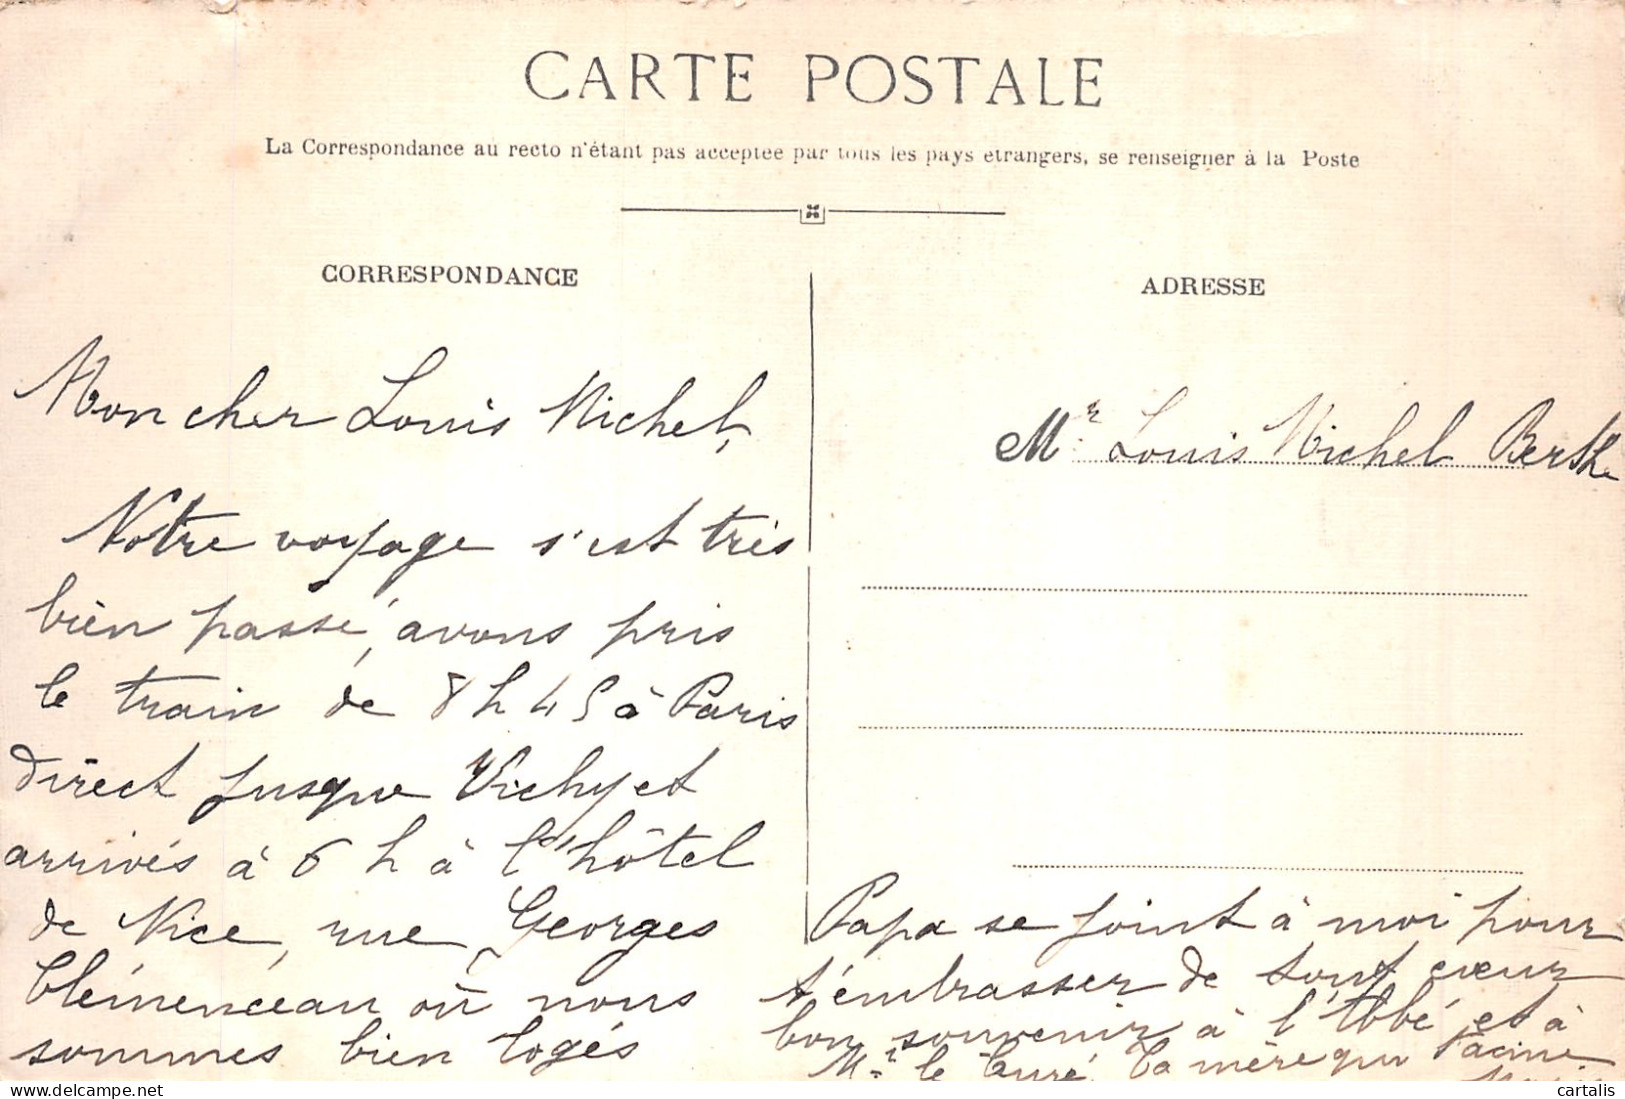 CARTE POSTALE
La Correspondance au recto n'étant pas acceptée par tous les pays étrangers, se renseigner à la Poste
CORRESPONDANCE
Mon cher Louis Michel,
Notre voyage s'est très
bien passé, avons pris
le train de 8 h 45 à Paris
direct jusque Vichy et
arrivés à 6 h à l'hôtel
de Nice, rue Georges
Clémenceau où nous
sommes bien logés
ADRESSE
Mr Louis Michel Berthe
Papa se joint à moi pour
t'embrasser de tout cœur
bon souvenir à l'Abbé et à
Mr le Curé, Ta mère qui
delcampe.net
cartalis